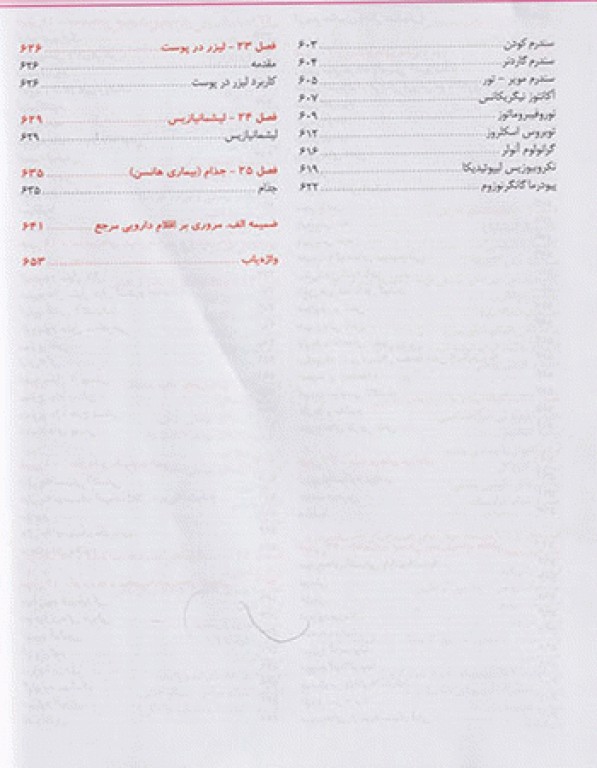 سندرم کودن ۶۰۳
سندرم گاردنر ۶۰۴
سندرم مویر - تور ۶۰۵
آکانتوز نیگریکانس ۶۰۷
نوروفیبروماتوز ۶۰۹
توبروس اسکلروز ۶۱۲
گرانولوم آنولر ۶۱۶
نکروبیوزیس لیپوئیدیکا ۶۱۹
پیودرما گانگرنوزوم ۶۲۲
فصل ۲۳ - لیزر در پوست ۶۲۶
مقدمه ۶۲۶
کاربرد لیزر در پوست ۶۲۶
فصل ۲۴ - لیشمانیازیس ۶۲۹
لیشمانیازیس ۶۲۹
فصل ۲۵ - جذام (بیماری هانسن) ۶۳۵
جذام ۶۳۵
ضمیمه الف. مروری بر اقلام دارویی مرجع ۶۴۱
واژه‌یاب ۶۵۳